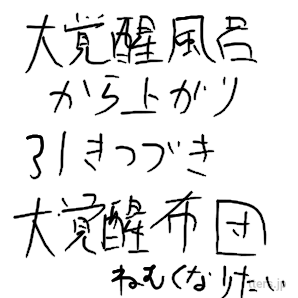 大覚醒風呂
から上がり
引きつづき
大覚醒布団
ねむくなりたい